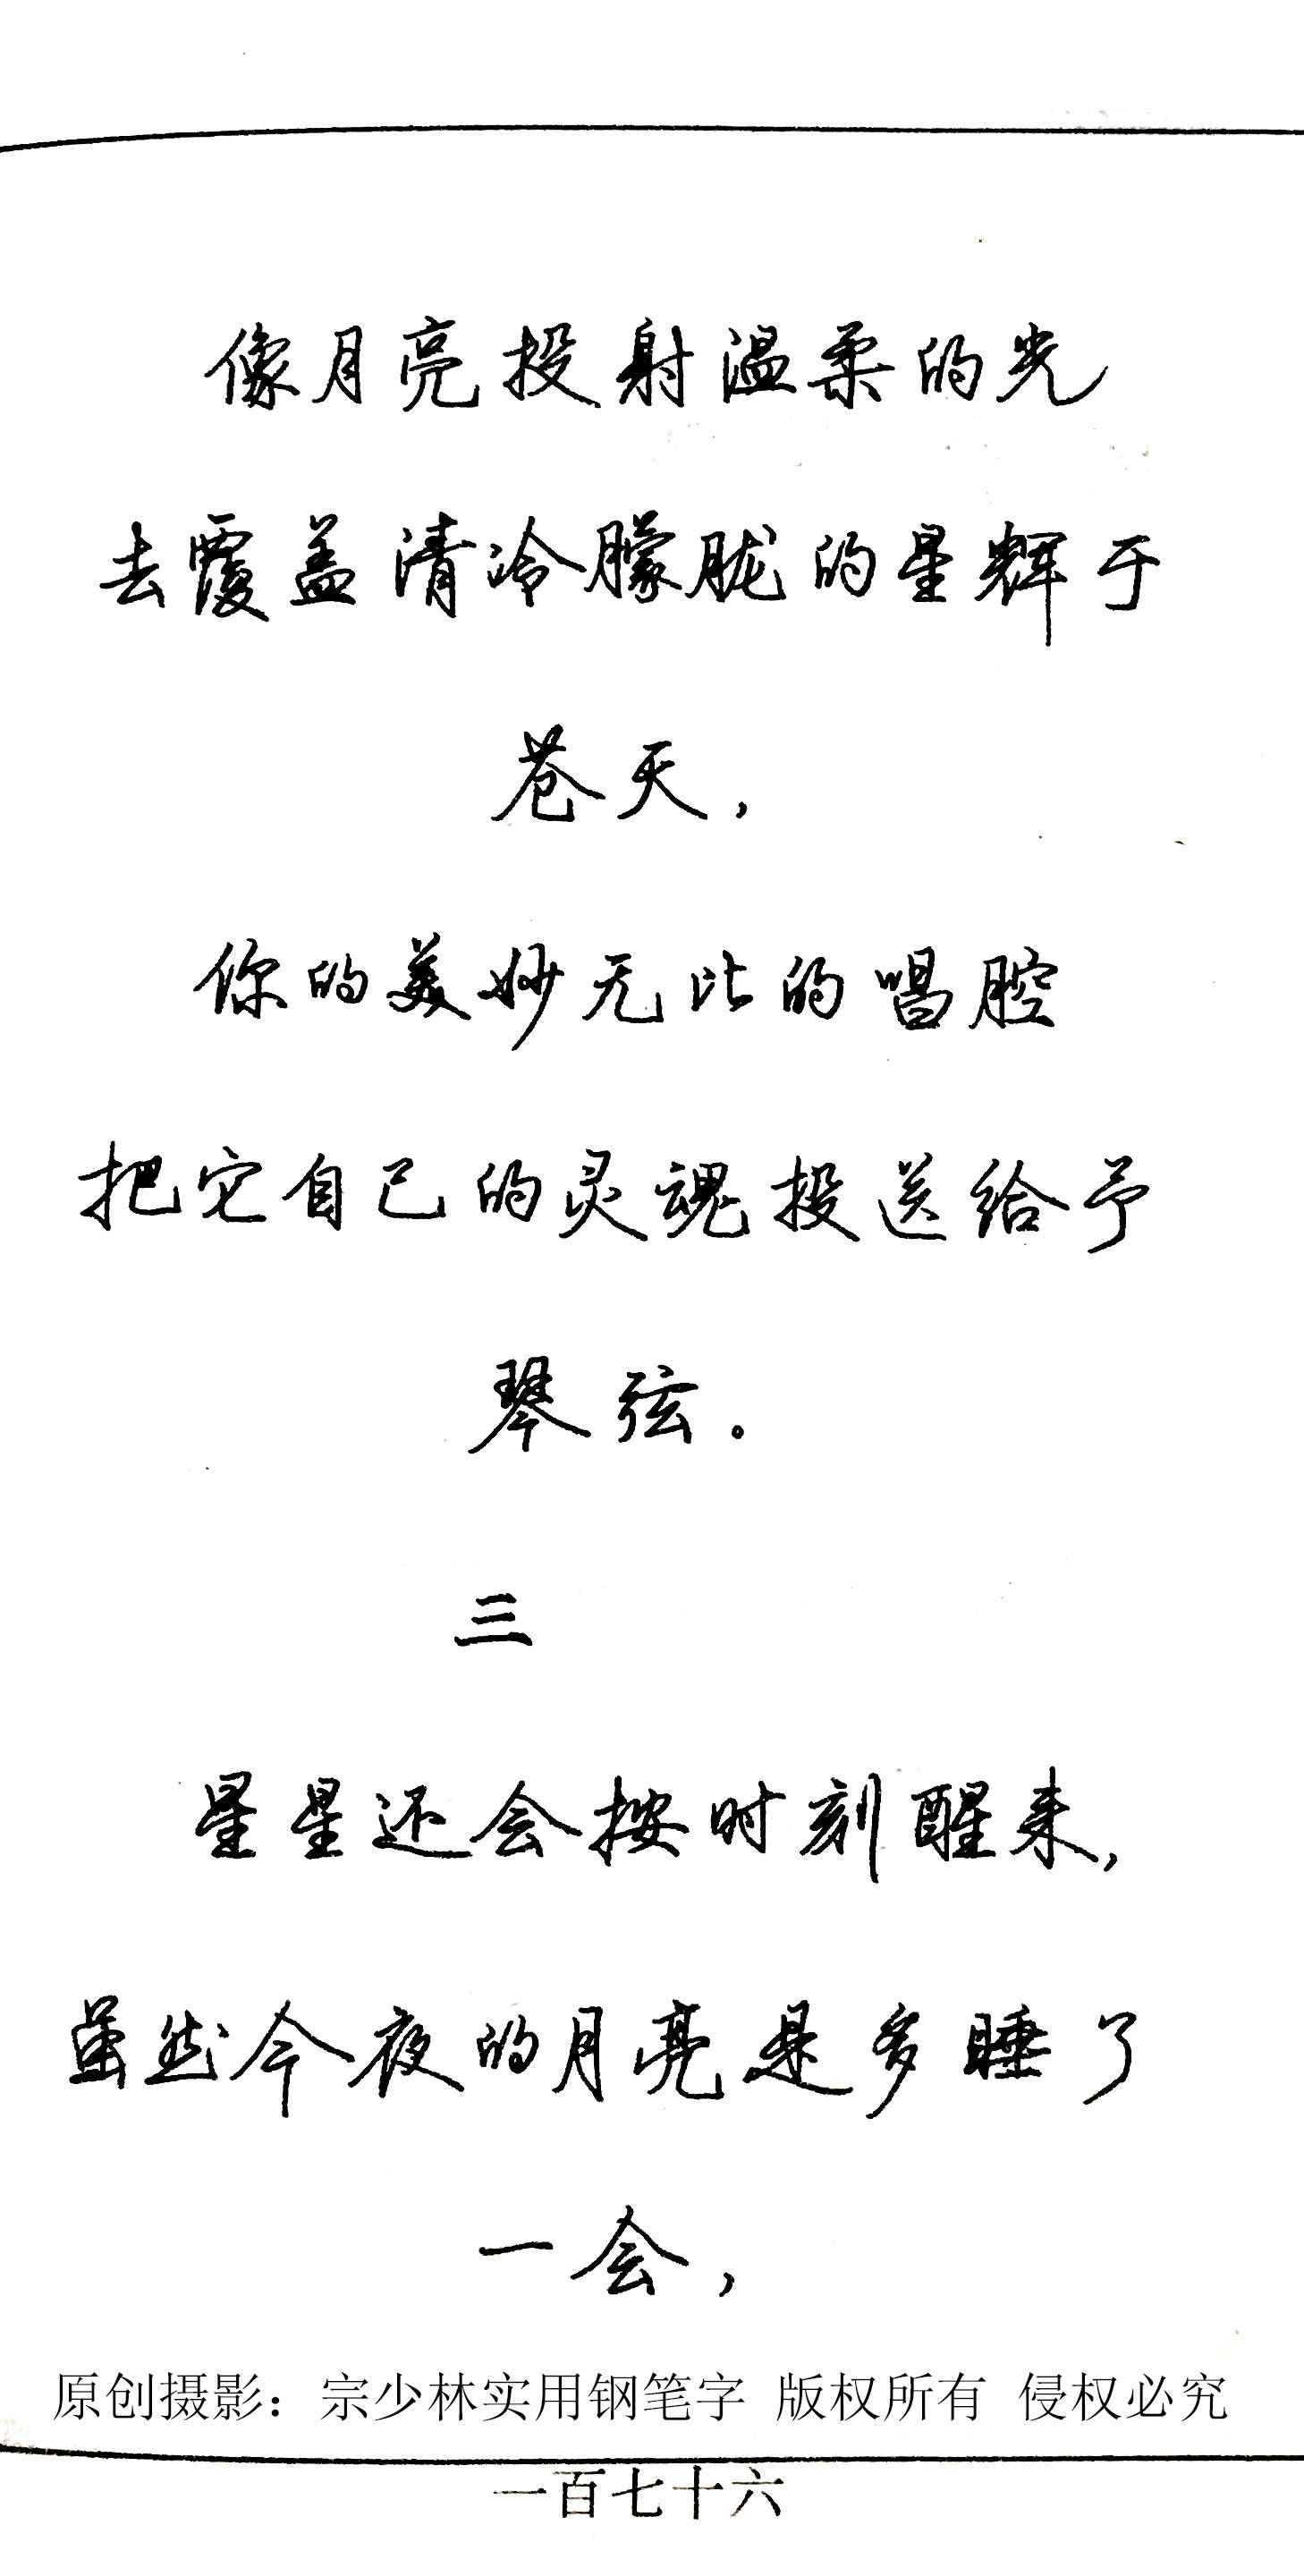 像月亮投射温柔的光
去覆盖清冷朦胧的星辉于
苍天，
你的美妙无比的唱腔
把它自己的灵魂投送给予
琴弦。
三
星星还会按时刻醒来，
虽然今夜的月亮是多睡了
一会，
原创摄影：宗少林实用钢笔字 版权所有 侵权必究
一百七十六